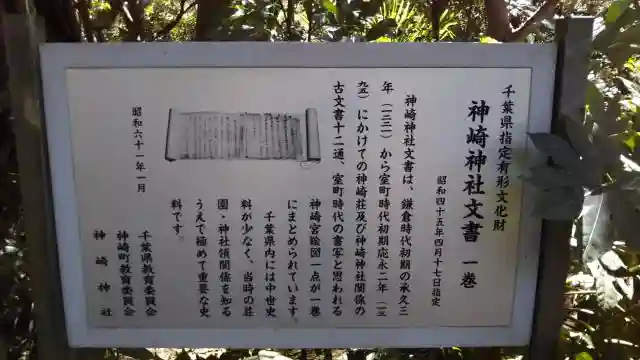 千葉県指定有形文化財
神崎神社文書 一巻
昭和四十五年四月十七日指定
神崎神社文書は、鎌倉時代初期の承久三
年（一二二一）から室町時代初期応永二年（一三
九五）にかけての神崎荘及び神崎神社関係の
古文書十二通、室町時代の書写と思われる
神崎宮絵図一点が一巻
にまとめられています。
千葉県内には中世史
料が少なく、当時の荘
園・神社領関係を知る
うえで極めて重要な史
料です。
昭和六十一年一月
千葉県教育委員会
神崎町教育委員会
神崎神社